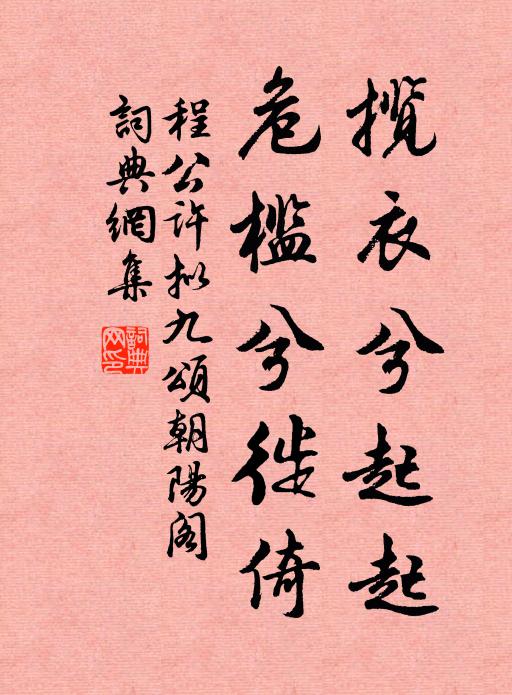 攬衣兮起起
危檻兮徙倚
程公许拟九頌朝陽阁
詞典網集
詞典網印